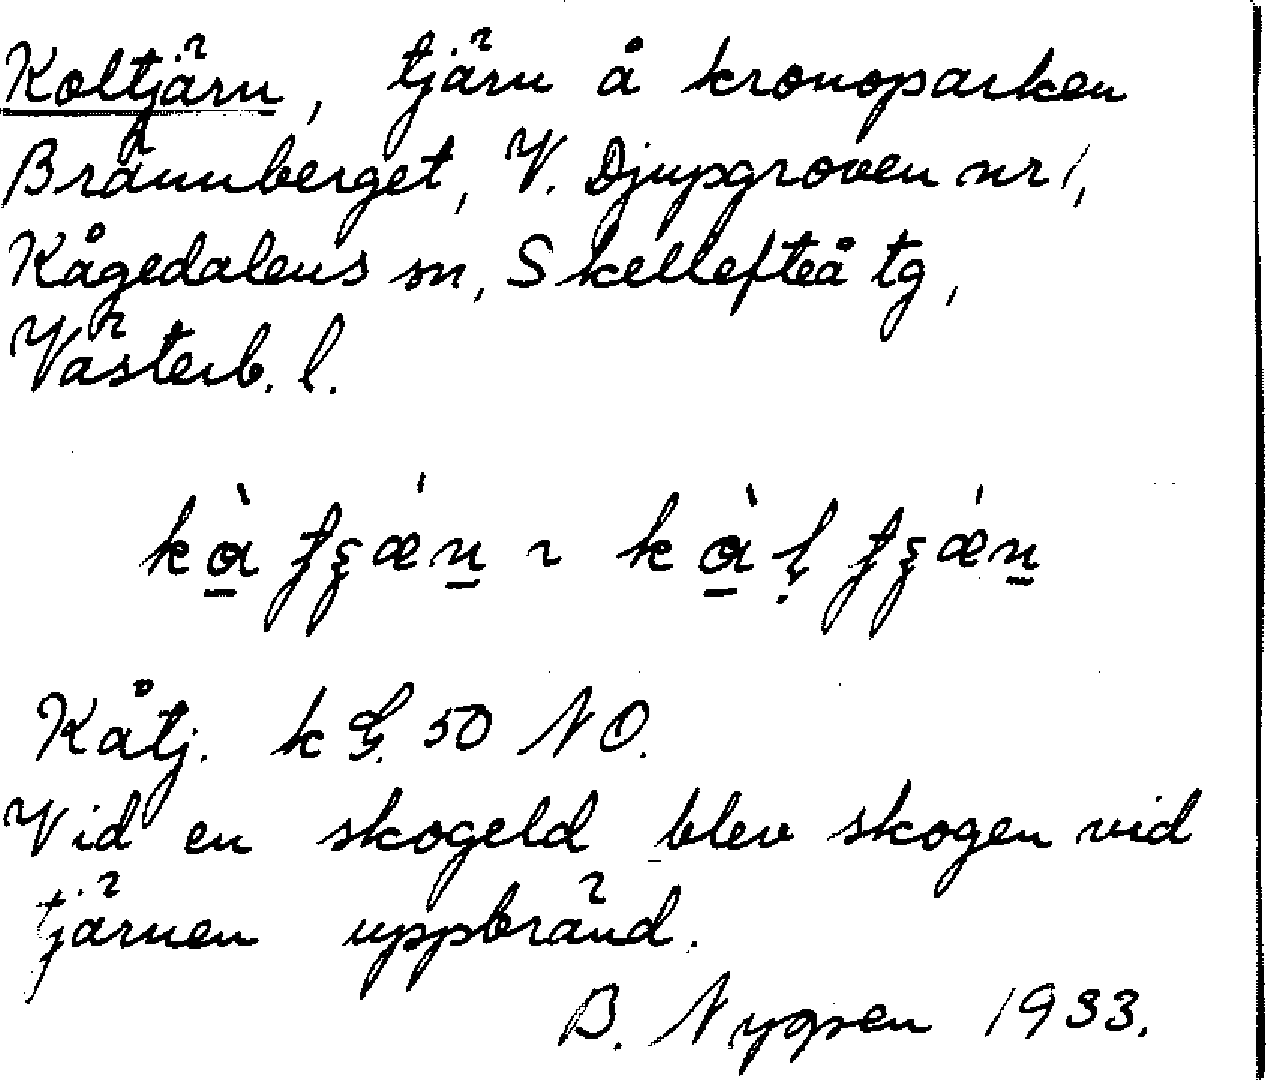 Koltjärn, tjärn å kronoparken
Brännberget, V. Djupgroven nr 1,
Kågedalens sn, Skellefteå tg,
Västerb. l.
Kåtj. k G. 50 NO.
Vid en skogeld blev skogen vid
tjärnen uppbränd.
B. Nygren 1933.